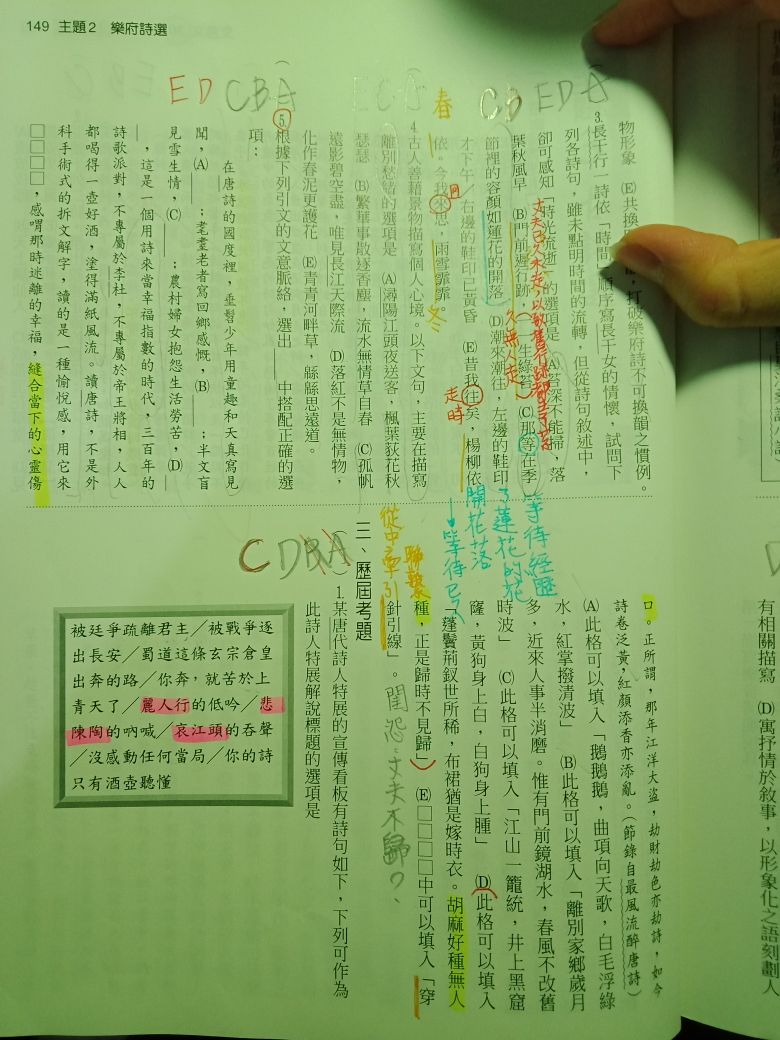 149 主題2 樂府詩選
物形象 (E)共換
，打破樂府詩不可換韻之慣例。
EDA
3.長干行一詩依「時間」順序寫長干女的情懷，試問下
列各詩句，雖未點明時間的流轉，但從詩句敘述中，
卻可感知「時光流逝」的選項是 (A)苔深不能掃，落
葉秋風早 (B)門前遲行跡，一一生綠苔 (C)那等在季
節裡的容顏如蓮花的開落 (D)潮來潮往，左邊的鞋印
才下午／右邊的鞋印已黃昏 (E)昔我往矣，楊柳依
依。今我來思，雨雪霏霏。
CB
久無人走
走時
春
冬
等待經歷
了蓮花的花
開花落
4.古人善藉景物描寫個人心境。以下文句，主要在描寫
離別愁緒的選項是 (A)潯陽江頭夜送客，楓葉荻花秋
瑟瑟 (B)繁華事散逐香塵，流水無情草自春 (C)孤帆
遠影碧空盡，唯見長江天際流 (D)落紅不是無情物，
化作春泥更護花 (E)青青河畔草，緜緜思遠道。
EDCBA
5.根據下列引文的文意脈絡，選出
中搭配正確的選
項：
在唐詩的國度裡，垂髫少年用童趣和天真寫見
聞，(A)　　；耄耋老者寫回鄉感慨，(B)　　；半文盲
見雪生情，(C)　　；農村婦女抱怨生活勞苦，(D)
　　，這是一個用詩來當幸福指數的時代，三百年的
詩歌派對，不專屬於李杜，不專屬於帝王將相，人人
都喝得一壺好酒，塗得滿紙風流。讀唐詩，不是外
科手術式的拆文解字，讀的是一種愉悅感，用它來
□□□□，感喟那時迷離的幸福，縫合當下的心靈傷
口。正所謂，那年江洋大盜，劫財劫色亦劫詩，如今
詩卷泛黃，紅顏添香亦添亂。（節錄自最風流醉唐詩）
(A)此格可以填入「鵝鵝鵝，曲項向天歌，白毛浮綠
水，紅掌撥清波」 (B)此格可以填入「離別家鄉歲月
多，近來人事半消磨。惟有門前鏡湖水，春風不改舊
時波」 (C)此格可以填入「江山一籠統，井上黑窟
窿，黃狗身上白，白狗身上腫」 (D)此格可以填入
「蓬鬢荊釵世所稀，布裙猶是嫁時衣。胡麻好種無人
種，正是歸時不見歸」 (E)□□□□中可以填入「穿
針引線」。
閨怨：丈夫不歸
聯繫
從中牽引
三、歷屆考題
CDBA
1.某唐代詩人特展的宣傳看板有詩句如下，下列可作為
此詩人特展解說標題的選項是
被廷爭疏離君主／被戰爭逐
出長安／蜀道這條玄宗倉皇
出奔的路／你奔，就苦於上
青天了／麗人行的低吟／悲
陳陶的吶喊／哀江頭的吞聲
／沒感動任何當局／你的詩
只有酒壺聽懂
有相關描寫 (D)寓抒情於敘事，以形象化之語刻劃人